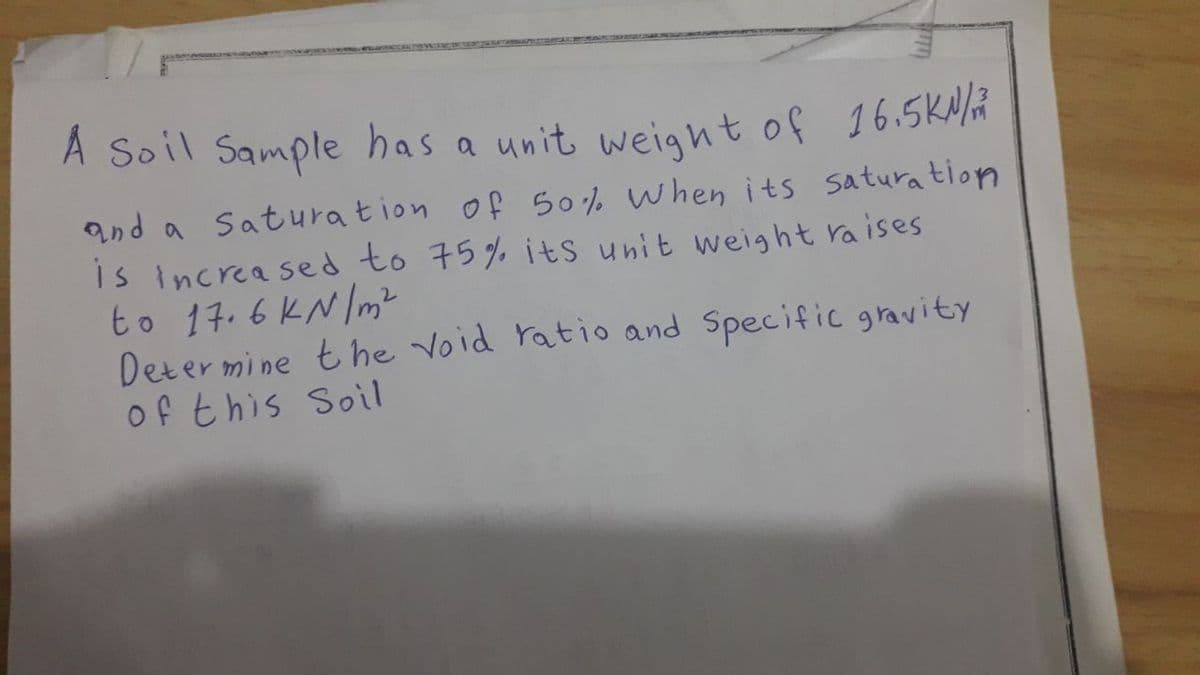 A Soil Sample has a unit weight of 16.5KN/m³
and a saturation of 50% When its saturation
is increased to 75% its unit weight raises
to 17.6 KN/m²
Determine the void ratio and specific gravity
of this Soil